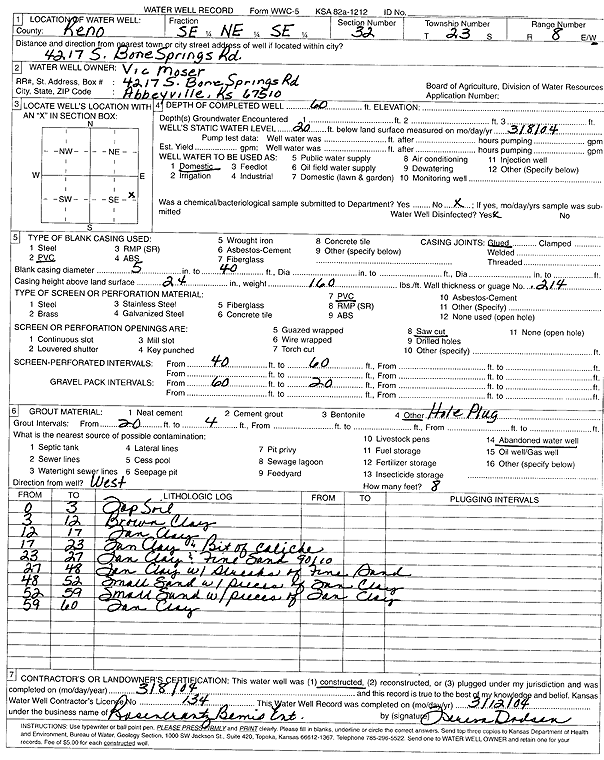 WATER WELL RECORD Form WWC-5 KSA 82a-1212 ID No.
1 LOCATION OF WATER WELL: Fraction Section Number Township Number Range Number
County: Reno SE ¼ NE ¼ SE ¼ 32 T 23 S R 8 E/W
Distance and direction from nearest town or city street address of well if located within city?
4217 S. Bone Springs Rd.
2 WATER WELL OWNER: Vic Moser
RR#, St. Address, Box # : 4217 S. Bone Springs Rd Board of Agriculture, Division of Water Resources
City, State, ZIP Code : Abbeyville, Ks 67510 Application Number:
3 LOCATE WELL'S LOCATION WITH AN "X" IN SECTION BOX:
N
NW NE
W E
SW SE X
S
4 DEPTH OF COMPLETED WELL 60 ft. ELEVATION:
Depth(s) Groundwater Encountered 1 ft. 2 ft. 3 ft.
WELL'S STATIC WATER LEVEL 20 ft. below land surface measured on mo/day/yr 3/8/04
Pump test data: Well water was ft. after hours pumping gpm
Est. Yield gpm: Well water was ft. after hours pumping gpm
WELL WATER TO BE USED AS: 5 Public water supply 8 Air conditioning 11 Injection well
1 Domestic 3 Feedlot 6 Oil field water supply 9 Dewatering 12 Other (Specify below)
2 Irrigation 4 Industrial 7 Domestic (lawn & garden) 10 Monitoring well
Was a chemical/bacteriological sample submitted to Department? Yes No X; If yes, mo/day/yrs sample was submitted
Water Well Disinfected? Yes X No
5 TYPE OF BLANK CASING USED: 5 Wrought iron 8 Concrete tile CASING JOINTS: Glued Clamped
1 Steel 3 RMP (SR) 6 Asbestos-Cement 9 Other (specify below) Welded
2 PVC 4 ABS 7 Fiberglass Threaded
Blank casing diameter 5 in. to 40 ft., Dia in. to ft., Dia in. to ft.
Casing height above land surface 24 in., weight 160 lbs./ft. Wall thickness or guage No. .214
TYPE OF SCREEN OR PERFORATION MATERIAL: 7 PVC 10 Asbestos-Cement
1 Steel 3 Stainless Steel 5 Fiberglass 8 RMP (SR) 11 Other (Specify)
2 Brass 4 Galvanized Steel 6 Concrete tile 9 ABS 12 None used (open hole)
SCREEN OR PERFORATION OPENINGS ARE: 5 Guazed wrapped 8 Saw cut 11 None (open hole)
1 Continuous slot 3 Mill slot 6 Wire wrapped 9 Drilled holes
2 Louvered shutter 4 Key punched 7 Torch cut 10 Other (specify) ft.
SCREEN-PERFORATED INTERVALS: From 40 ft. to 60 ft., From ft. to ft.
From ft. to ft., From ft. to ft.
GRAVEL PACK INTERVALS: From 60 ft. to 20 ft., From ft. to ft.
From ft. to ft., From ft. to ft.
6 GROUT MATERIAL: 1 Neat cement 2 Cement grout 3 Bentonite 4 Other Hole Plug
Grout Intervals: From 20 ft. to 4 ft., From ft. to ft., From ft. to ft.
What is the nearest source of possible contamination: 10 Livestock pens 14 Abandoned water well
1 Septic tank 4 Lateral lines 7 Pit privy 11 Fuel storage 15 Oil well/Gas well
2 Sewer lines 5 Cess pool 8 Sewage lagoon 12 Fertilizer storage 16 Other (specify below)
3 Watertight sewer lines 6 Seepage pit 9 Feedyard 13 Insecticide storage
Direction from well? West How many feet? 8
FROM TO LITHOLOGIC LOG FROM TO PLUGGING INTERVALS
0 3 Top Soil
3 12 Brown Clay
12 17 Tan Clay
17 23 Tan Clay & Bit of Caliche
23 27 Tan Clay & Fine Sand 90/10
27 48 Tan Clay w/ Streaks of Fine Sand
48 52 Small Sand w/ pieces of Tan Clay
52 59 Small Sand w/ pieces of Tan Clay
59 60 Tan Clay
7 CONTRACTOR'S OR LANDOWNER'S CERTIFICATION: This water well was (1) constructed, (2) reconstructed, or (3) plugged under my jurisdiction and was
completed on (mo/day/year) 3/8/04 and this record is true to the best of my knowledge and belief. Kansas
Water Well Contractor's License No 134 This Water Well Record was completed on (mo/day/yr) 3/12/04
under the business name of Rosencrantz Bemis Ent. by (signature) Dodson
INSTRUCTIONS: Use typewriter or ball point pen. PLEASE PRESS FIRMLY and PRINT clearly. Please fill in blanks, underline or circle the correct answers. Send top three copies to Kansas Department of Health
and Environment, Bureau of Water, Geology Section, 1000 SW Jackson St., Suite 420, Topeka, Kansas 66612-1367. Telephone 785-296-5522. Send one to WATER WELL OWNER and retain one for your
records. Fee of $5.00 for each constructed well.